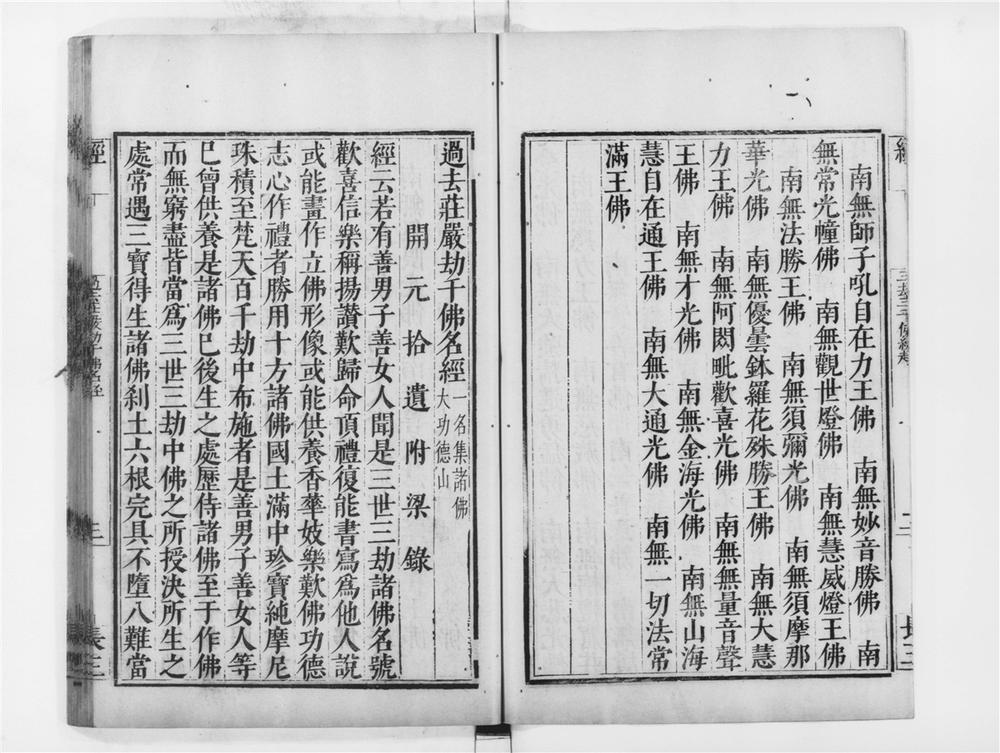 南無師子吼自在力王佛　南無妙音勝佛　南
無常光幢佛　南無觀世燈佛　南無慧威燈王佛
南無法勝王佛　南無須彌光佛　南無須摩那
華光佛　南無優曇鉢羅花殊勝王佛　南無大慧
力王佛　南無阿閦毗歡喜光佛　南無無量音聲
王佛　南無才光佛　南無金海光佛　南無山海
慧自在通王佛　南無大通光佛　南無一切法常
滿王佛
過去莊嚴劫千佛名經一名集諸佛
大功德山
開元拾遺附梁錄
經云若有善男子善女人聞是三世三劫諸佛名號
歡喜信樂稱揚讚歎歸命頂禮復能書寫爲他人說
或能畫作立佛形像或能供養香華妓樂歎佛功德
志心作禮者勝用十方諸佛國土滿中珍寶純摩尼
珠積至梵天百千劫中布施者是善男子善女人等
已曾供養是諸佛已後生之處歷侍諸佛至于作佛
而無窮盡皆當爲三世三劫中佛之所授決所生之
處常遇三寶得生諸佛刹土六根完具不墮八難當
經
三
長三